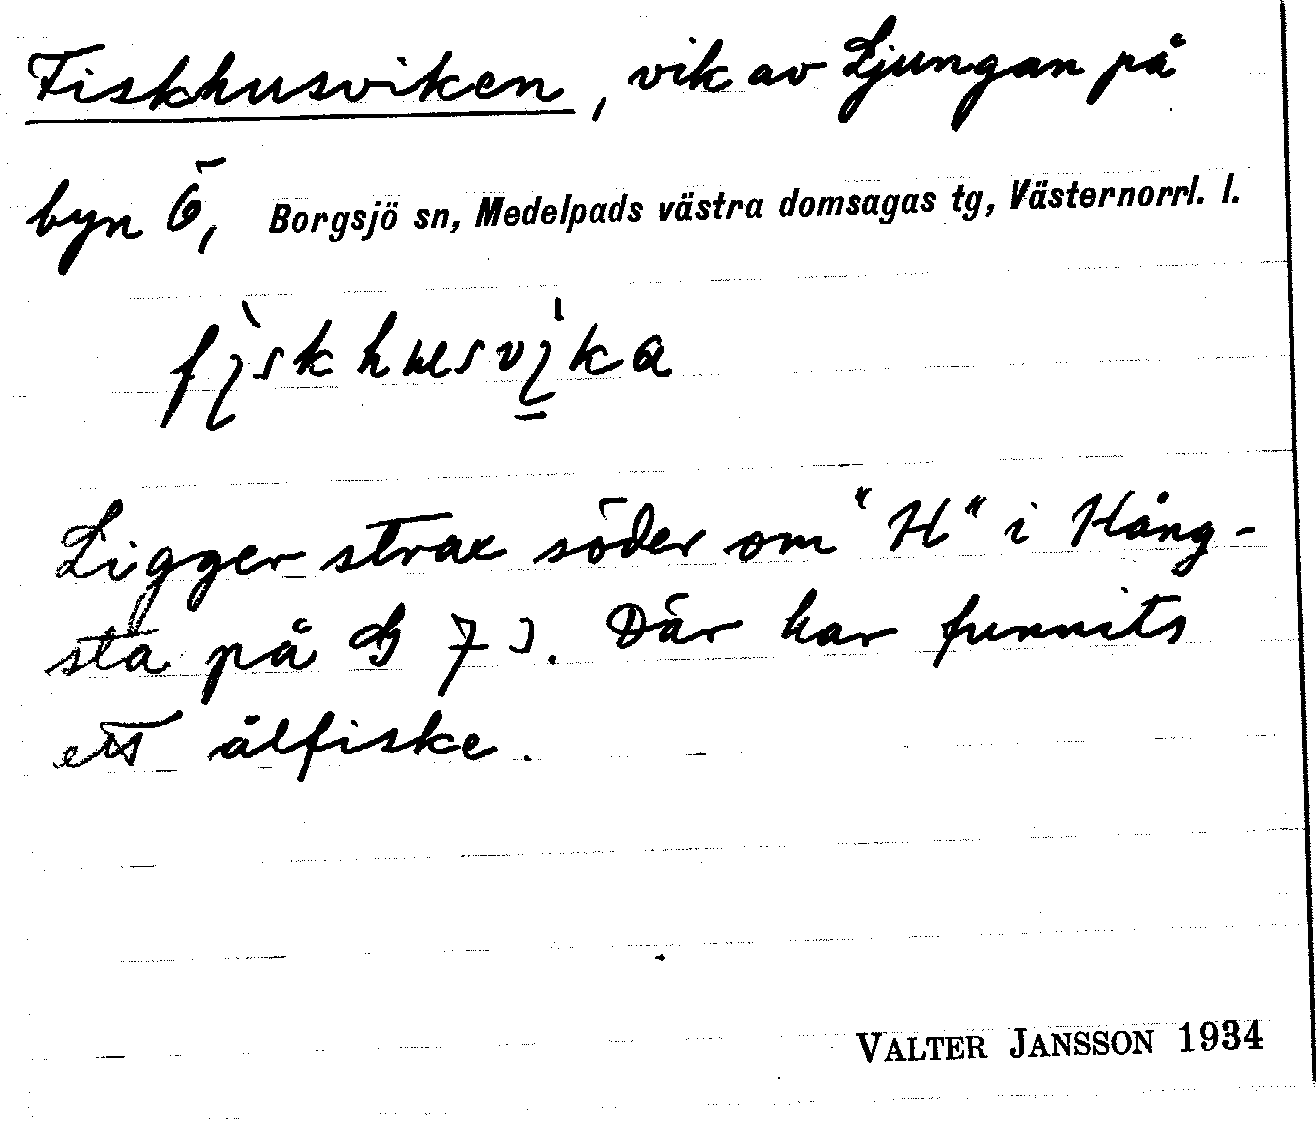 Fiskhusviken, vik av Ljungan på
byn Ö, Borgsjö sn, Medelpads västra domsagas tg, Västernorrl. l.
fiskhusvika
Ligger strax söder om "H" i Hång-
sta på gk 73. Där har funnits
ett ålfiske.
VALTER JANSSON 1934